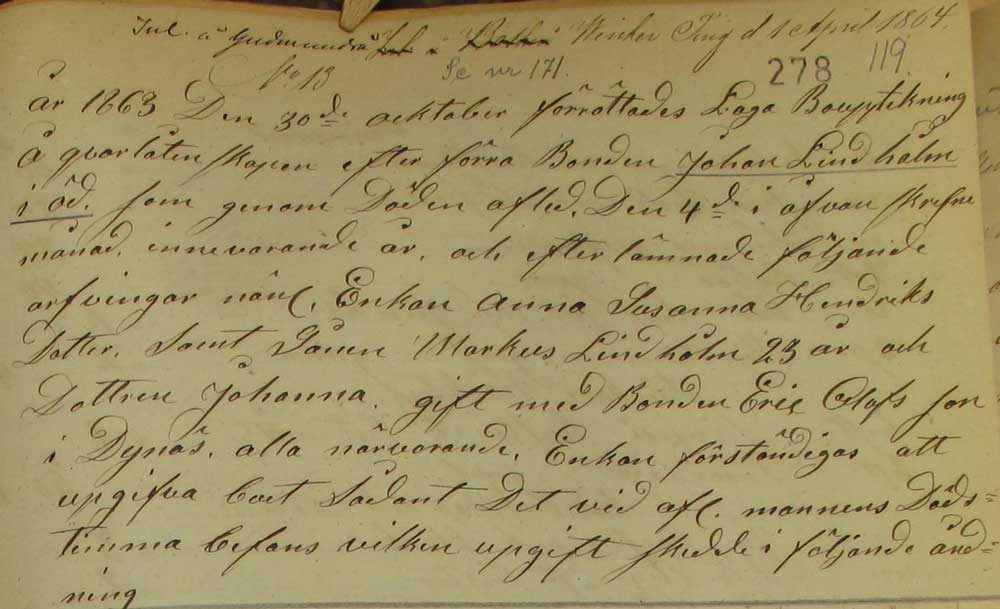 Jul. å Gudmundrå Winter Ting d 1 April 1864.
No 13 Se nr 171. 278 119
år 1863 Den 30de ocktober förrättades Laga Bouptekning
å qvarlåtenskapen efter förra Bonden Johan Lindholm
i öd. som genom Döden afled, Den 4de i ofvan skrefne
månad, innevarande år, och efterlämnade följande
arfvingar näml. Enkan Anna Susanna Hendriks
Dotter, samt Sonen Markus Lindholm 23 år och
Dottren Johanna, gift med Bonden Eric Olofs son
i Dynäs, alla närvarande, Enkan förständigas att
upgifva boet sådant Det vid afl. mannens Döds=
timma befans vilken upgift skedde i följande ånd=
ning